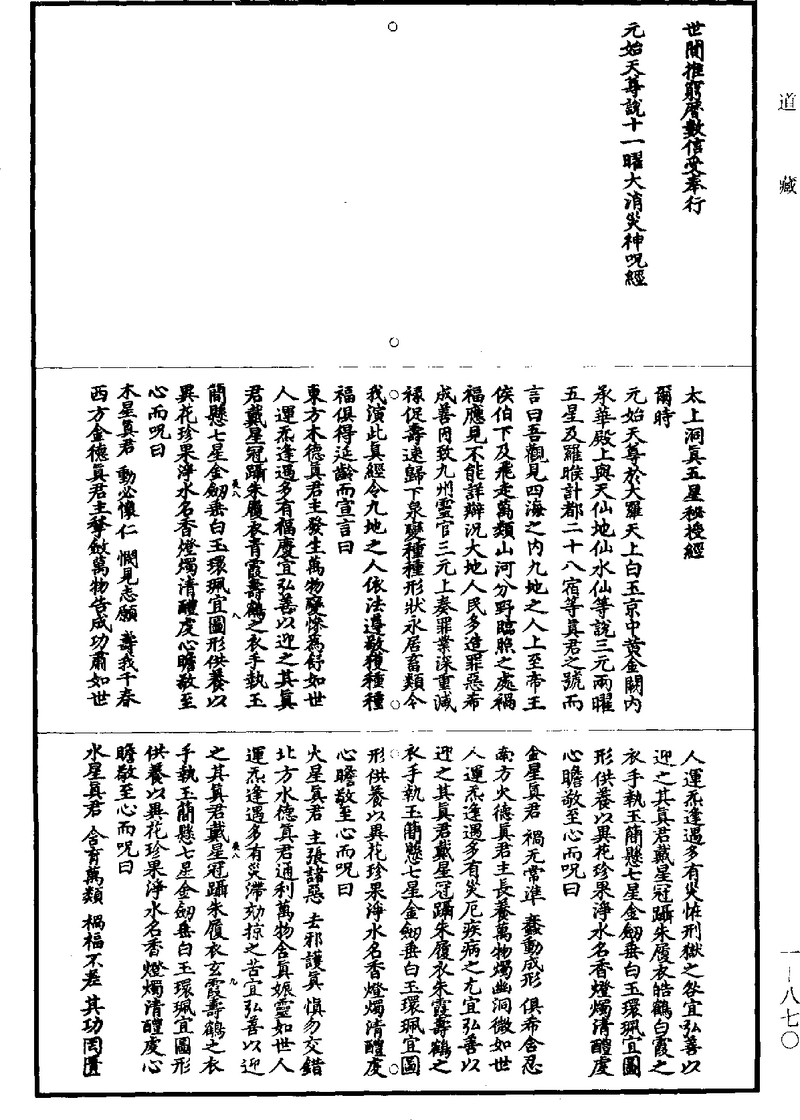 道藏
世間推窮曆數信受奉行
元始天尊說十一曜大消災神呪經
太上洞眞五星秘授經
爾時
元始天尊於大羅天上白玉京中黃金闕內
承華殿上與天仙地仙水仙等說三元兩曜
五星及羅睺計都二十八宿等眞君之號而
言曰吾觀見四海之內九地之人上至帝王
侯伯下及飛走萬類山河分野臨照之處禍
福應見不能詳辯況大地人民多造罪惡希
成善因致九州靈官三元上奏罪業深重減
祿促壽速歸下泉變種種形狀永居畜類令
我演此眞經令九地之人依法遵敬獲種種
福俱得延齡而宣言曰
東方木德眞君主發生萬物變慘爲舒如世
人運炁逢遇多有福慶宜弘善以迎之其眞
君戴星冠躡朱履衣青霞壽鶴之衣手執玉
簡懸七星金劒垂白玉環珮宜圖形供養以
異花珍果淨水名香燈燭清醴虔心瞻敬至
心而呪曰
木星眞君 動必懷仁 憫見志願 壽我千春
西方金德眞君主擎斂萬物告成功肅如世
人運炁逢遇多有災怪刑獄之咎宜弘善以
迎之其眞君戴星冠躡朱履衣皓鶴白霞之
衣手執玉簡懸七星金劒垂白玉環珮宜圖
形供養以異花珍果淨水名香燈燭清醴虔
心瞻敬至心而呪曰
金星眞君 禍无常準 蠢動成形 俱希含忍
南方火德眞君主長養萬物燭幽洞微如世
人運炁逢遇多有災厄疾病之尤宜弘善以
迎之其眞君戴星冠躡朱履衣朱霞壽鶴之
衣手執玉簡懸七星金劒垂白玉環珮宜圖
形供養以異花珍果淨水名香燈燭清醴虔
心瞻敬至心而呪曰
火星眞君 主張諸惡 去邪護眞 愼勿交錯
北方水德眞君通利萬物含眞娠靈如世人
運炁逢遇多有災滯刼掠之苦宜弘善以迎
之其眞君戴星冠躡朱履衣玄霞壽鶴之衣
手執玉簡懸七星金劒垂白玉環珮宜圖形
供養以異花珍果淨水名香燈燭清醴虔心
瞻敬至心而呪曰
水星眞君 含育萬類 禍福不差 其功罔匱
一—八七〇